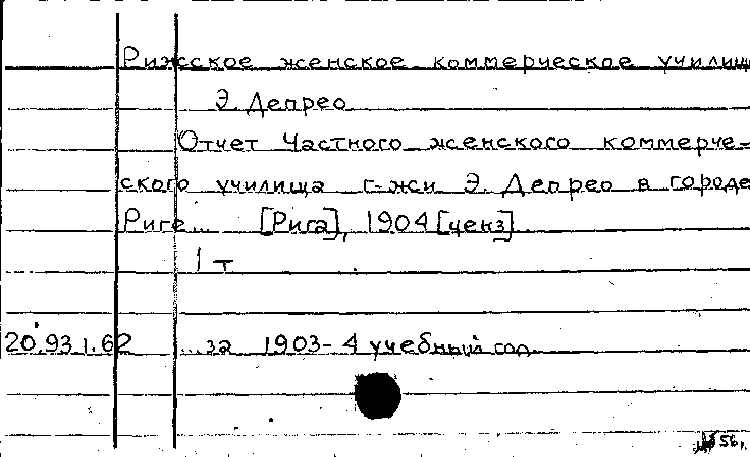 Рижское женское коммерческое училищ
Э. Депрео
Отчет Частного женского коммерче-
ского училища г-жи Э. Депрео в городе
Риге... [Рига], 1904 [ценз]
1 т
20.93.1.62 ...за 1903-4 учебный год
56 г.